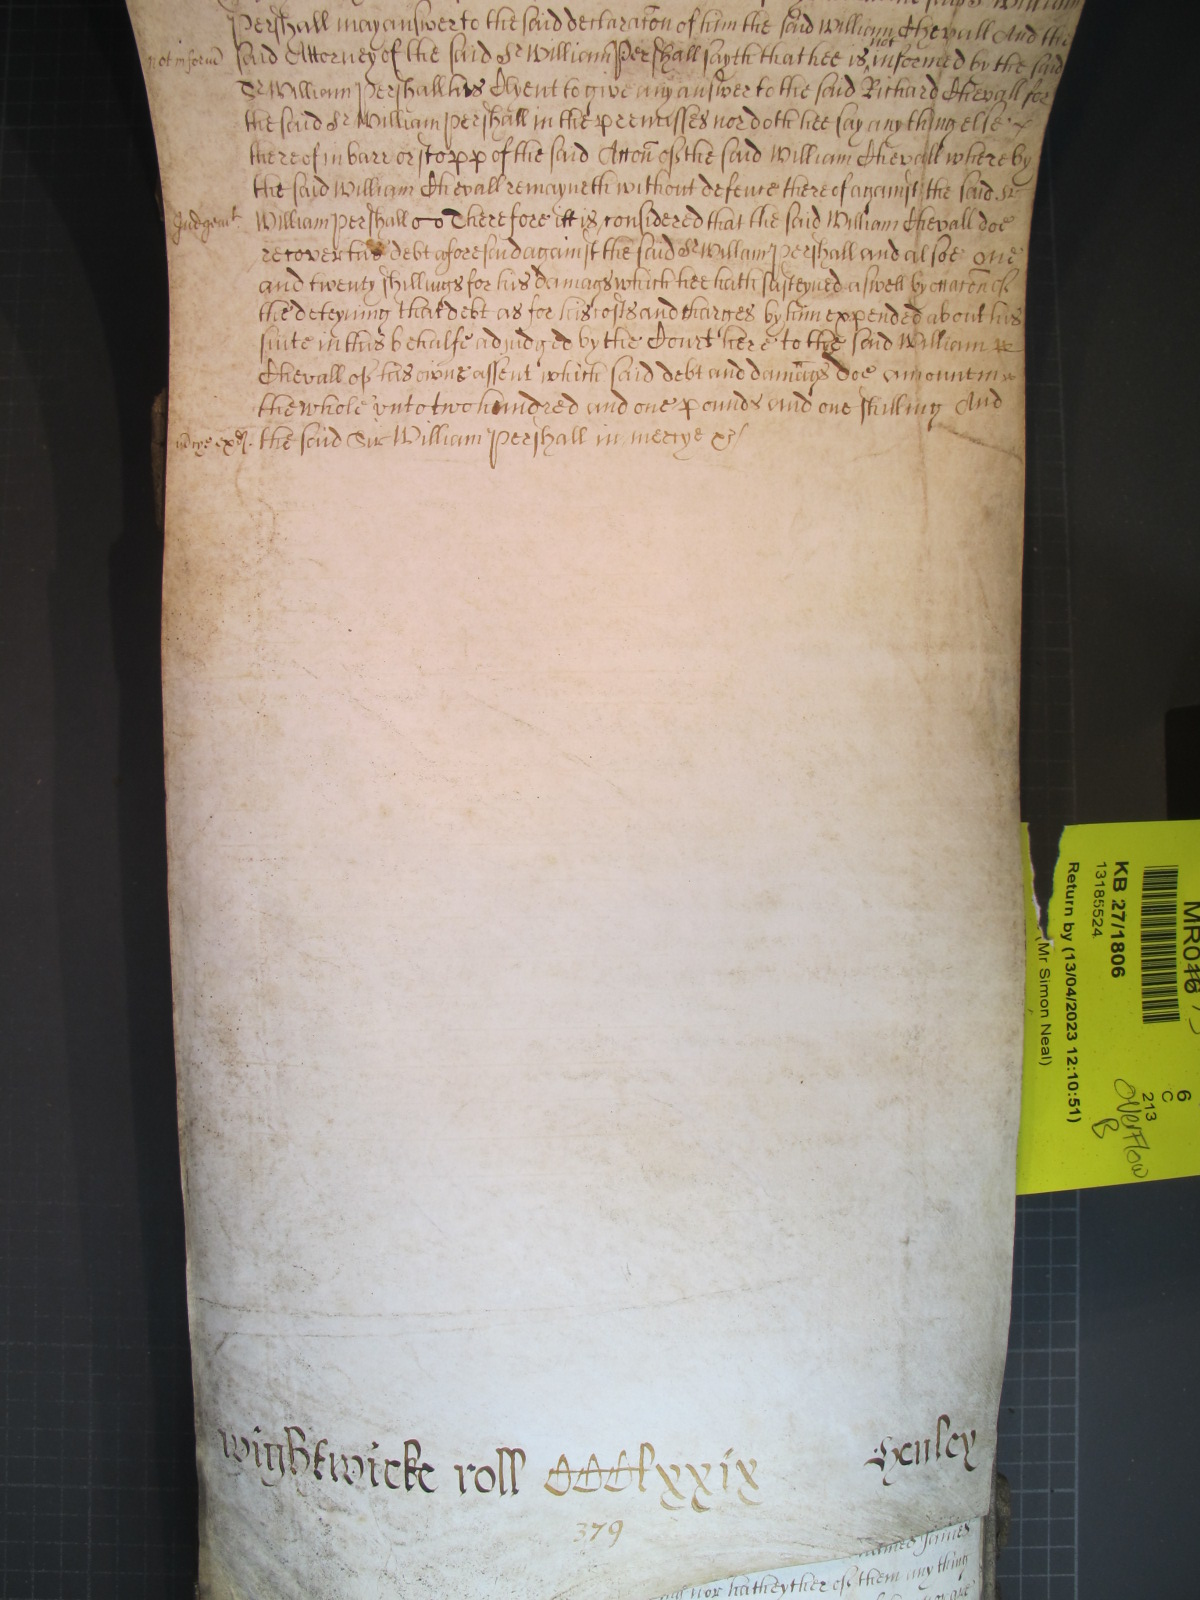 Pershall may answer to the said declaracon of him the said William Chevall And the
not inform'd said Attorney of the said Sr William Pershall sayth that hee is not informed by the said
Sr William Pershall his Clyent to give any answer to the said Richard Chevall for
the said Sr William Pershall in the premisses nor doth hee say any thing else
thereof in barr or stopp of the said Accon of the said William Chevall whereby
the said William Chevall remayneth without defence thereof against the said Sr
Judgmt William Pershall Therefore itt is considered that the said William Chevall doe
recover his debt aforesaid against the said Sr William Pershall and alsoe one
and twenty shillings for his damags which hee hath susteyned aswell by occacon of
the deteyning that debt as for his costs and charges by him expended about his
suite in this behalfe adjudged by the Court here to the said William
Chevall of his owne assent which said debt and damags doe amount in
the whole unto two hundred and one pounds and one shilling And
the said Sir William Pershall in mercye &c
Wightwicke roll CCClxxix Henley
379
James
nor hath eyther of them any thing
MR046
KB 27/1806
13185524
Return by (13/04/2023 12:10:51)
(Mr Simon Neal)
6
C
213
overflow
B